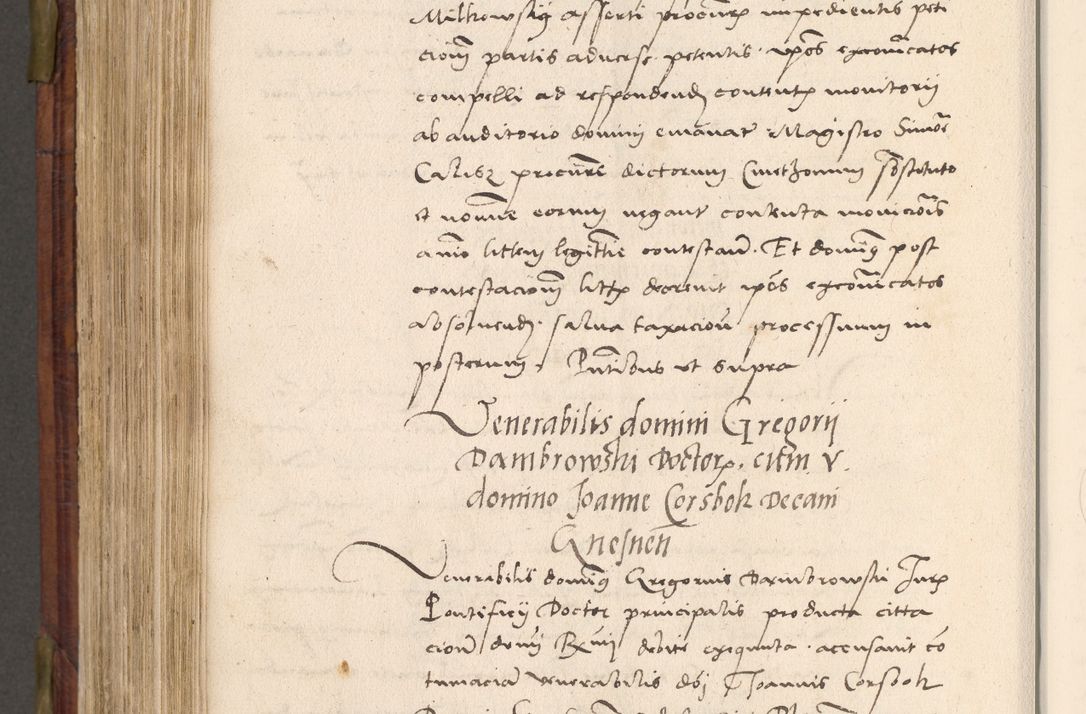 Milkowskij asserti procurꝝ impedientis peti
cionē partis adverse petentis ipōs excōīcatos
compelli ad respondendū contentꝝ monitorij
ab auditorio domini emānat Magistro Simōe
Calisz procūre dictorum Cmethonum sbstituto
et nomīe eorum negant contenta monicōīs
anīo littem legittīe contestañ. Et dominus post
contestacionē littꝝ decrevit ipōs excōīcatos
absolvendū salva taxacione processuum in
posterum. Pntibus ut supra
Venerabilis domini Gregorij
Dambrowski Doctorꝝ. citm V.
domino Joanne Corsbok Decani
Gnesneñ
Venerabilis dominus Gregorius Dambrowski Jurꝝ
Pontificij Doctor principalis producta citta
cione domī Rxmij debite exequuta accusavit cō
tumaciā venerabilis dōj Joannis Corsbok